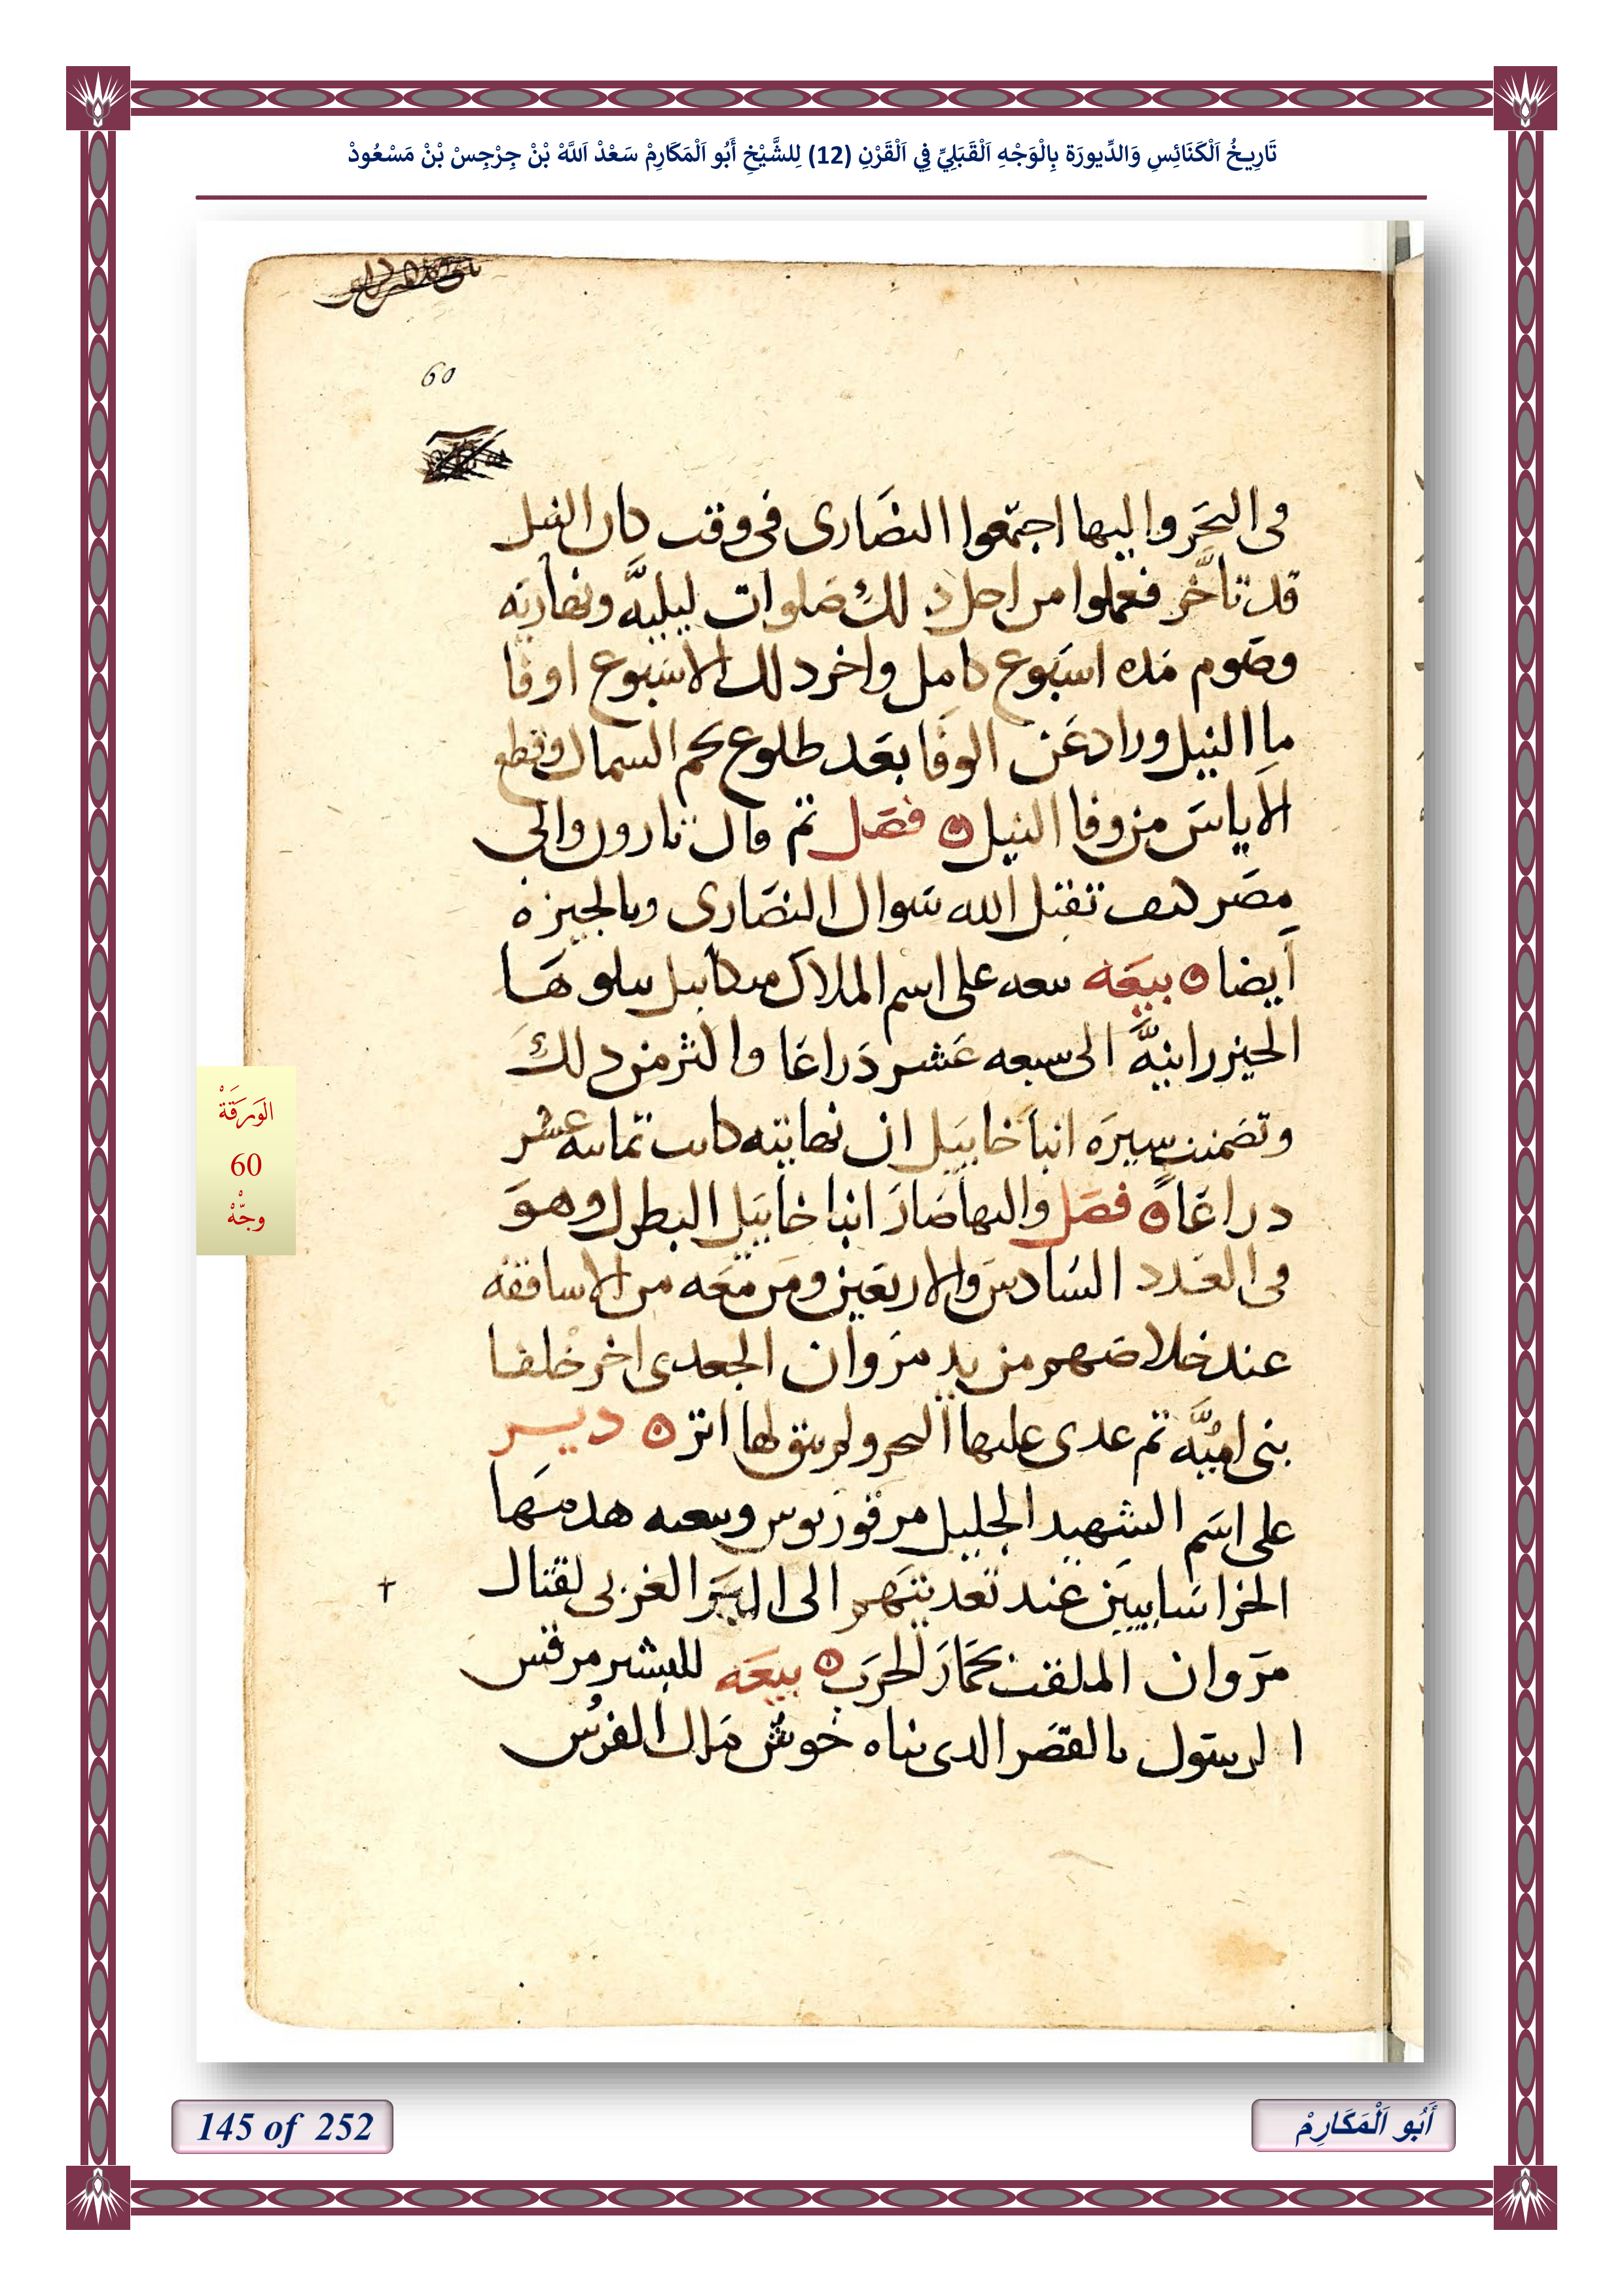 تَارِيخُ اَلْكَنَائِسِ وَالدِّيورَة بِالْوَجْهِ اَلْقَبَلِيِّ فِي اَلْقَرْنِ (12) لِلشَّيْخِ أَبُو اَلْمَكَارِمْ سَعْدْ اَللَّهْ بْنْ جِرْجِسْ بْنْ مَسْعُودْ
60
فى البحَر واليها اجتمّعوا النصَارى فى وقت كان النيل
قد تاخّر فعملوا من اجل دلك صَلوات ليليّه ونهاريَه
وصَوم مَده اسبَوع كامل واخر دلك الاسَبوع اوفَا
ماِ النيل وزاد عَن الوفَا بعَد طلوع نجم السماك وقطع
الاَياسَ من وفا النيل ه فصَل تم قال نارون والى
مصَر كيف تقبل الله سَوال النصَارى وبالجيزه
اَيضا ه بيعَه بيعه على اسم الملاك ميكاييل يىلوهَا
الحيزرانيهَّ الى سبعه عَشر دَراعَا واكثر من دلك
وتضمنت سيرَه انباَ خاييَل ان نهايته كانت تمانيه عشر
دراعَا ه فصَل واليها صَارَ انبا خاييَل البطرك وهوَ
فى العَدد السَادسَ والاربعَين ومَن معَه من الاساقفه
عند خلاصَهم من يد مرَوان الجعدى اخر خلفا
بنى اميّه تم عدى عليها البحر ولم يبق لها اتر ه ديـر
على اسَم الشهيد الجليل مرقوريوس وبيعه هدمَها
الخراسَانييَن عند تعديتهَم الى البرَ الغربى لقتال
✝
مرَوان الملقب بحمَارَ الحرَب ه بيعَه للبشير مرقس
الرسَول بالقصَر الدى بناه خوش مَلك الفرسُ
الوَرَقَةْ
60
وجّْهْ
145 of 252
أَبُو اَلْمَكَارِمْ